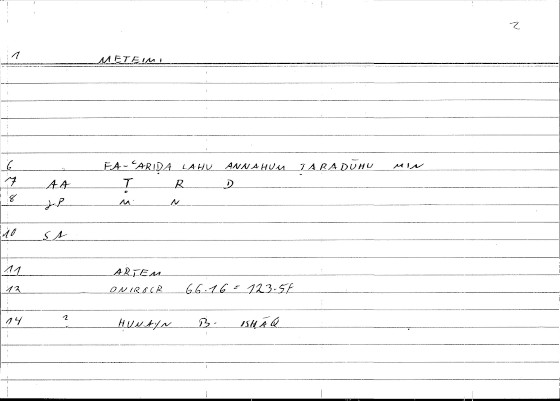 2
1 METEIMI
6 FA-ʿARIḌA LAHU ANNAHUM ṬARADŪHU MIN
7 AA Ṭ R D
8 gP M N
10 SA
11 ARTEM
12 ONIROCR 66.16 = 123.5f
14 ? ḤUNAYN B. ISḤĀQ